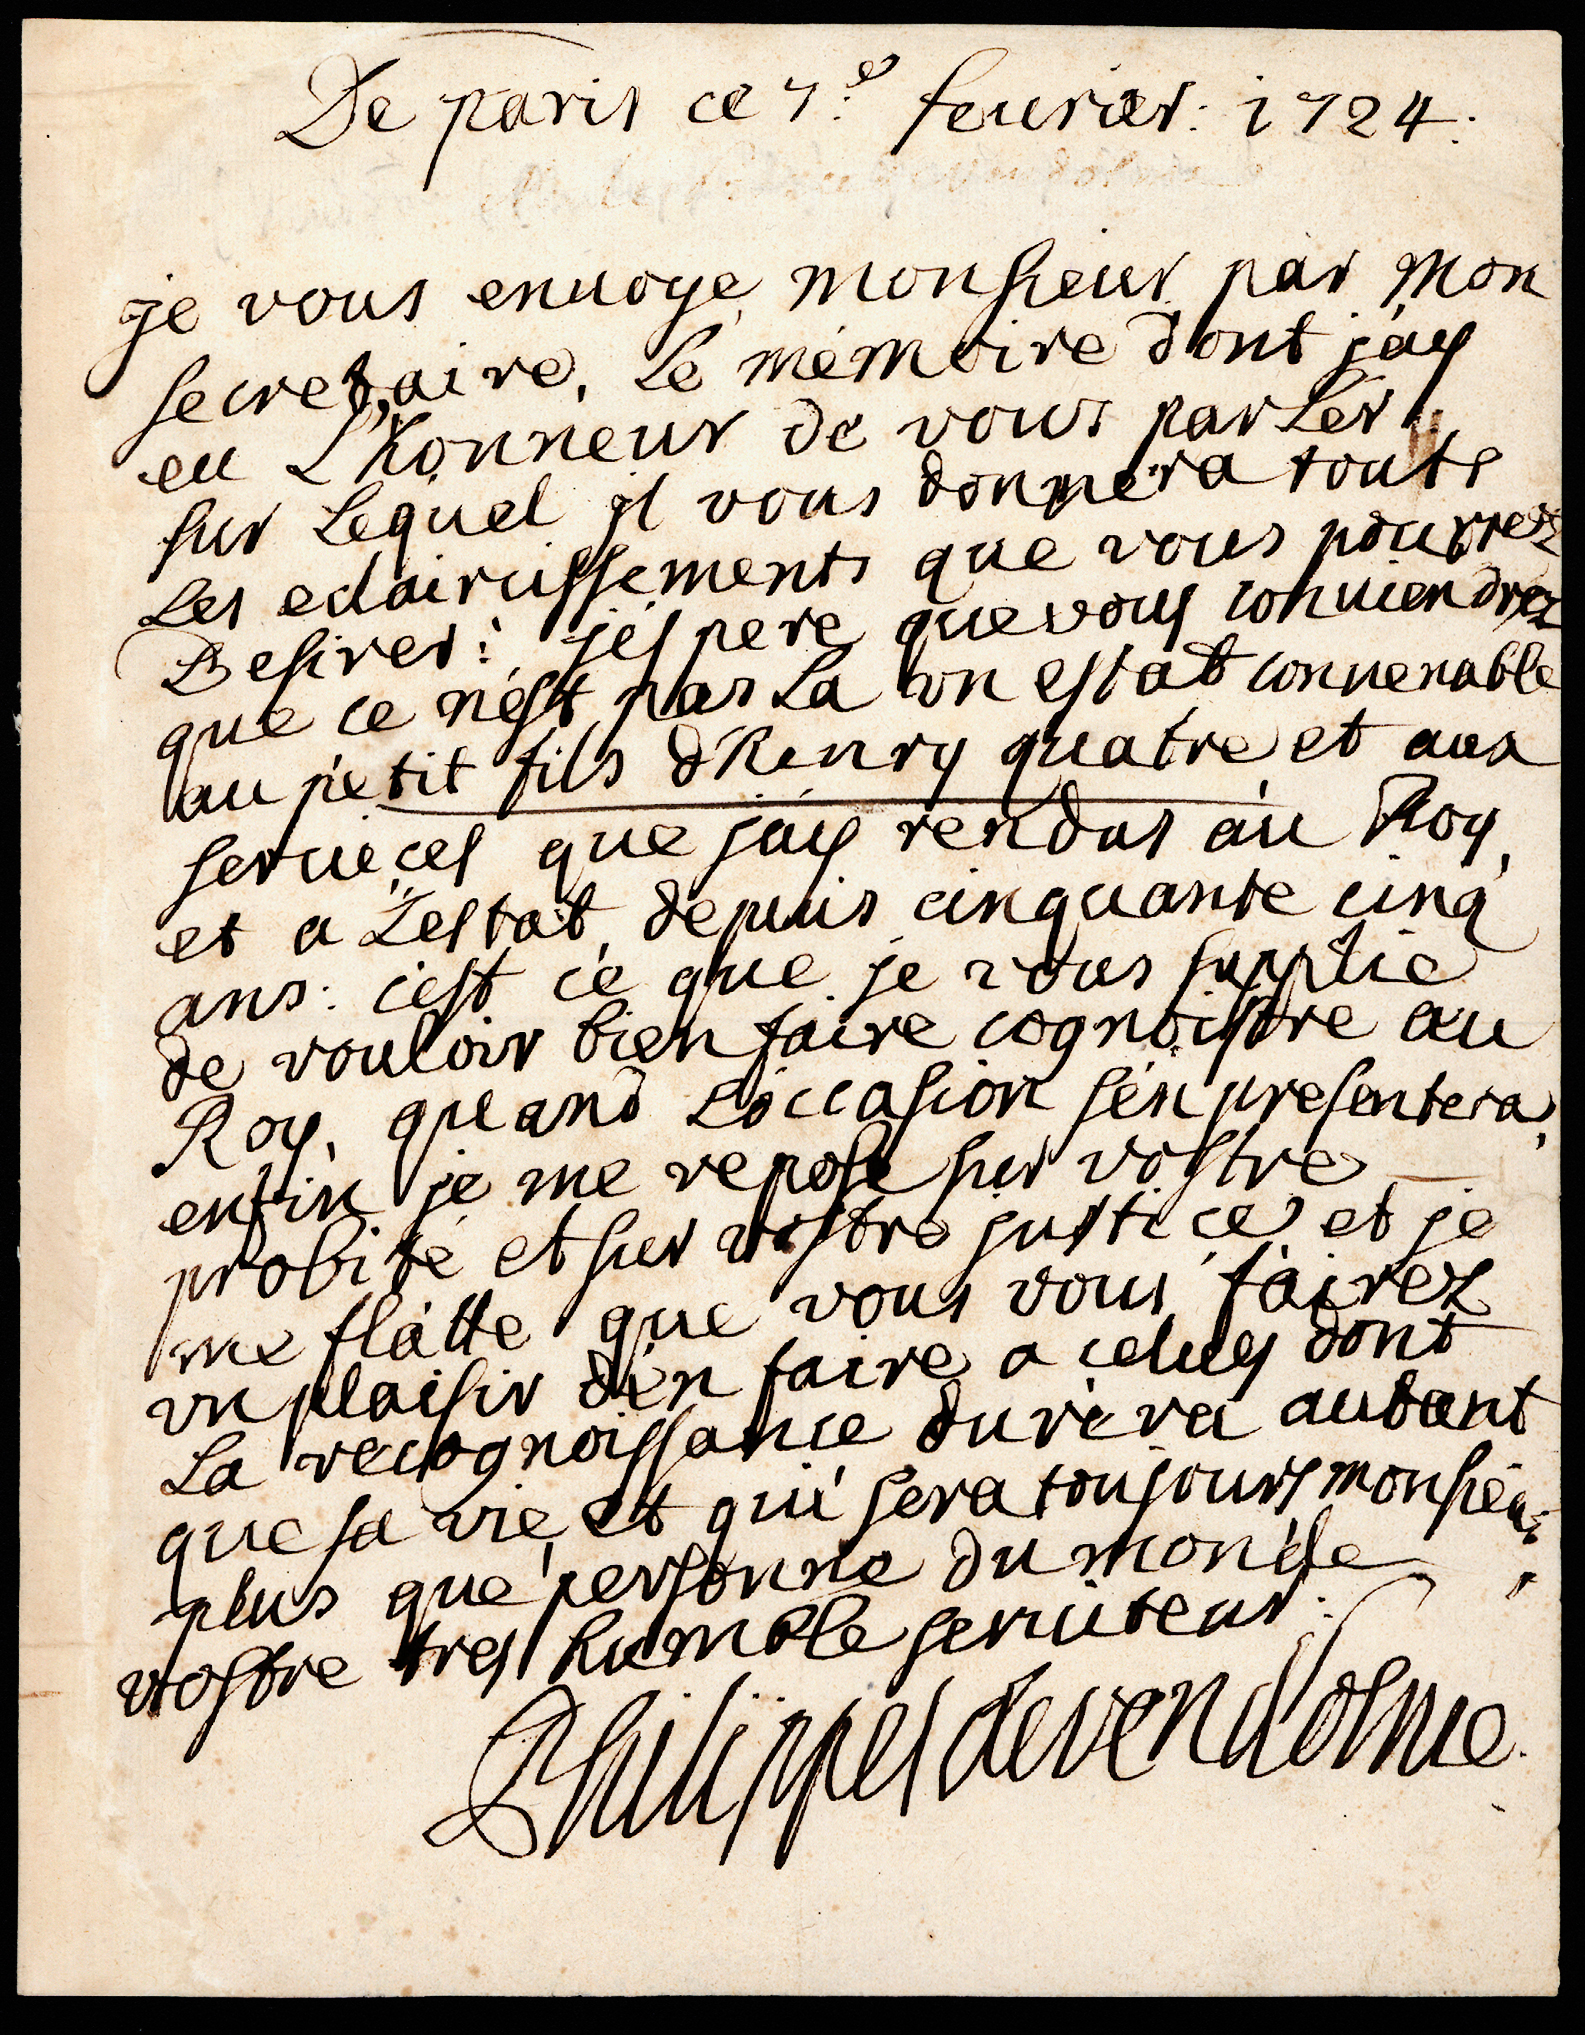 De paris ce 7.e feurier: 1724.
je vous enuoye, monsieur, par mon
secretaire, Le mémoire dont jáy
eu L'honneur de vous parler,
sur Lequel jl vous donnera touts
Les eclaircissements que vous pourrez
Desirer: j'espere que vous conuiendrez
que ce n'est pas La vn estat conuenable
au petit fils d'henry quatre et aux
seruices que jáy rendus au Roy,
et a L'estat, depuis cinquante cinq
ans: c'est ce que je vous supplie
de vouloir bien faire cognoistre au
Roy, quand L'occasion s'en presentera,
enfin je me repose sur vostre
probité et sur vostre justice et je
me flatte que vous vous fairez
vn plaisir d'en faire a celuy dont
La recognoissance durera autant
que sa vie, et qui sera toujours, monsieur,
plus que personne du monde
vostre tres humble seruiteur.
Philippes de vendosme.